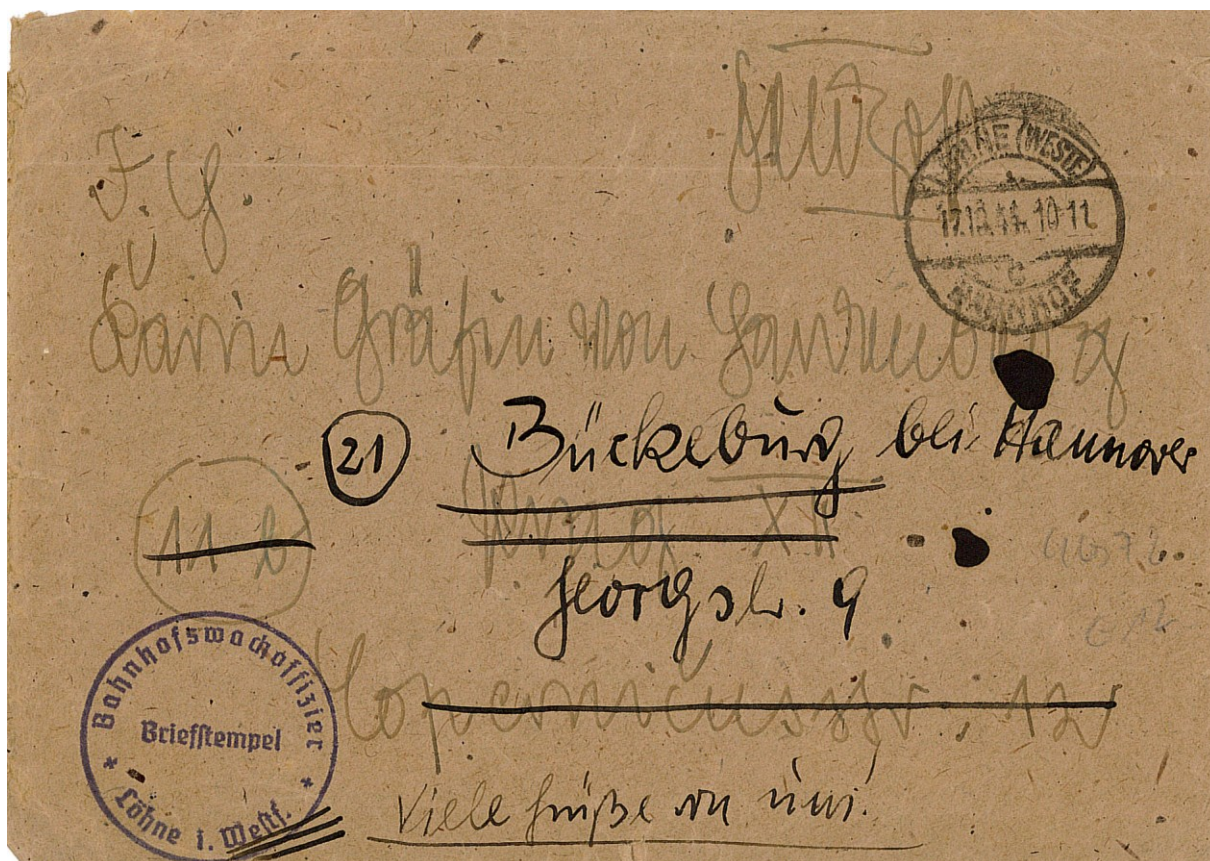 Feldpost
LÖHNE (WESTF)
17.10.44. 10-11
c
BAHNHOF
I. H.
Karin Gräfin von
21 Bückeburg bei Hannover
11 b Prag XII
Georgstr. 9
Copernicusstr. 12
Bahnhofswachoffizier
Briefstempel
Löhne i. Westf.
Viele Grüße von uns.